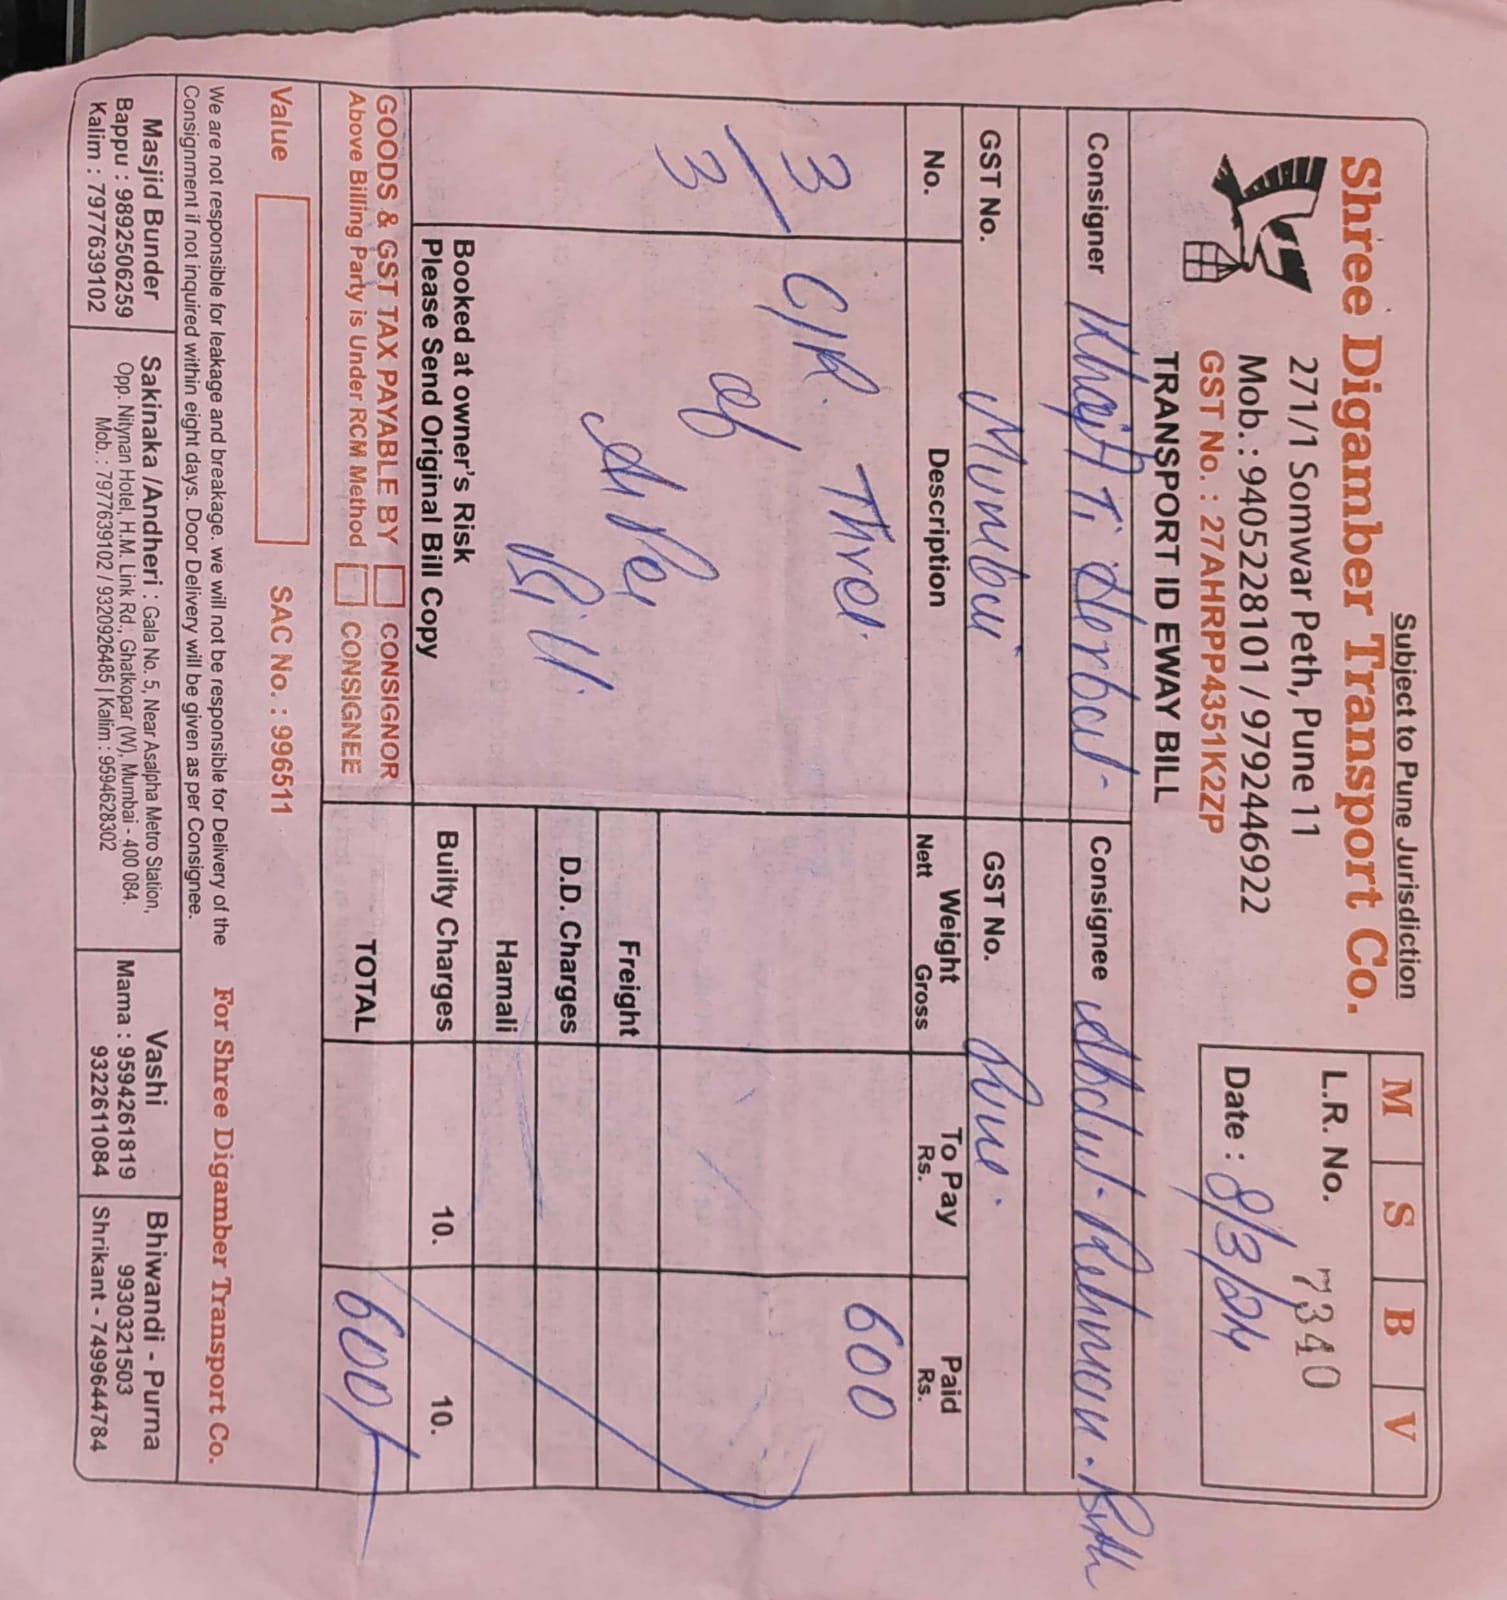 Subject to Pune Jurisdiction
M S B V
Shree Digamber Transport Co.
271/1 Somwar Peth, Pune 11
Mob. : 9405228101 / 9792446922
GST No. : 27AHRPP4351K2ZP
TRANSPORT ID EWAY BILL
L.R. No. 7340
Date : 8/3/24
Consigner Herbal
Consignee Abdul Rehman
GST No. Mumbai
GST No. Pune
No. Description Weight Nett Gross To Pay Rs. Paid Rs.
3 C/R. Three 600
3 of
As Per
Bill
Freight
D.D. Charges
Hamali
Booked at owner's Risk
Please Send Original Bill Copy
Builty Charges 10. 10.
GOODS & GST TAX PAYABLE BY CONSIGNOR
Above Billing Party is Under RCM Method CONSIGNEE
TOTAL 600/-
Value SAC No. : 996511
We are not responsible for leakage and breakage. we will not be responsible for Delivery of the
Consignment if not inquired within eight days. Door Delivery will be given as per Consignee.
For Shree Digamber Transport Co.
Masjid Bunder
Bappu : 9892506259
Kalim : 7977639102
Sakinaka /Andheri : Gala No. 5, Near Asalpha Metro Station,
Opp. Nitynan Hotel, H.M. Link Rd., Ghatkopar (W), Mumbai - 400 084.
Mob. : 7977639102 / 9320926485 | Kalim : 9594628302
Vashi
Mama : 9594261819
9322611084
Bhiwandi - Purna
9930321503
Shrikant - 7499644784